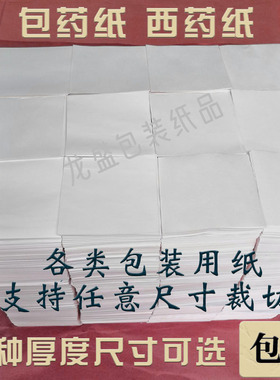 包药纸 西药纸
龙盛包装纸品
各类包装用纸
支持任意尺寸裁切
种厚度尺寸可选
包